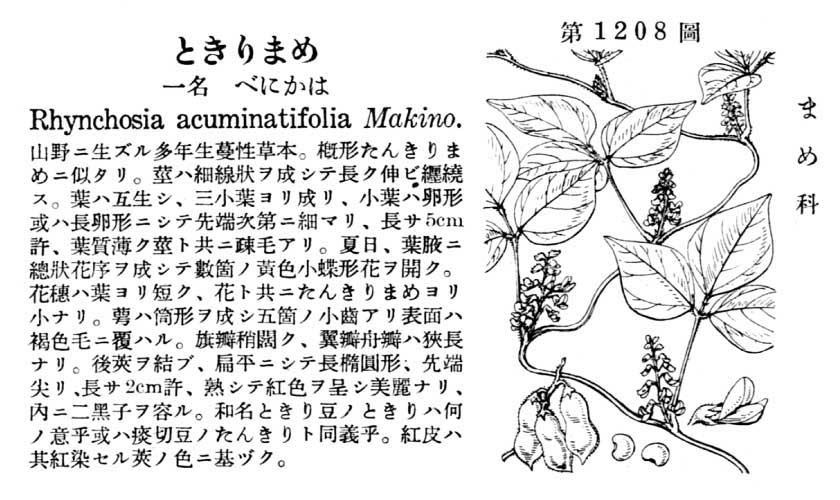 第1208圖
まめ科
ときりまめ
一名　べにかは
Rhynchosia acuminatifolia Makino.
山野ニ生ズル多年生蔓性草本。概形たんきりま
めニ似タリ。莖ハ細線狀ヲ成シテ長ク伸ビ纒繞
ス。葉ハ互生シ、三小葉ヨリ成リ、小葉ハ卵形
或ハ長卵形ニシテ先端次第ニ細マリ、長サ5cm
許、葉質薄ク莖ト共ニ疎毛アリ。夏日、葉腋ニ
總狀花序ヲ成シテ數箇ノ黃色小蝶形花ヲ開ク。
花穗ハ葉ヨリ短ク、花ト共ニたんきりまめヨリ
小ナリ。萼ハ筒形ヲ成シ五箇ノ小齒アリ表面ハ
褐色毛ニ覆ハル。旗瓣稍闊ク、翼瓣舟瓣ハ狹長
ナリ。後莢ヲ結ブ、扁平ニシテ長橢圓形、先端
尖リ、長サ2cm許、熟シテ紅色ヲ呈シ美麗ナリ、
內ニ二黑子ヲ容ル。和名ときり豆ノときりハ何
ノ意乎或ハ痰切豆ノたんきりト同義乎。紅皮ハ
其紅染セル莢ノ色ニ基ヅク。